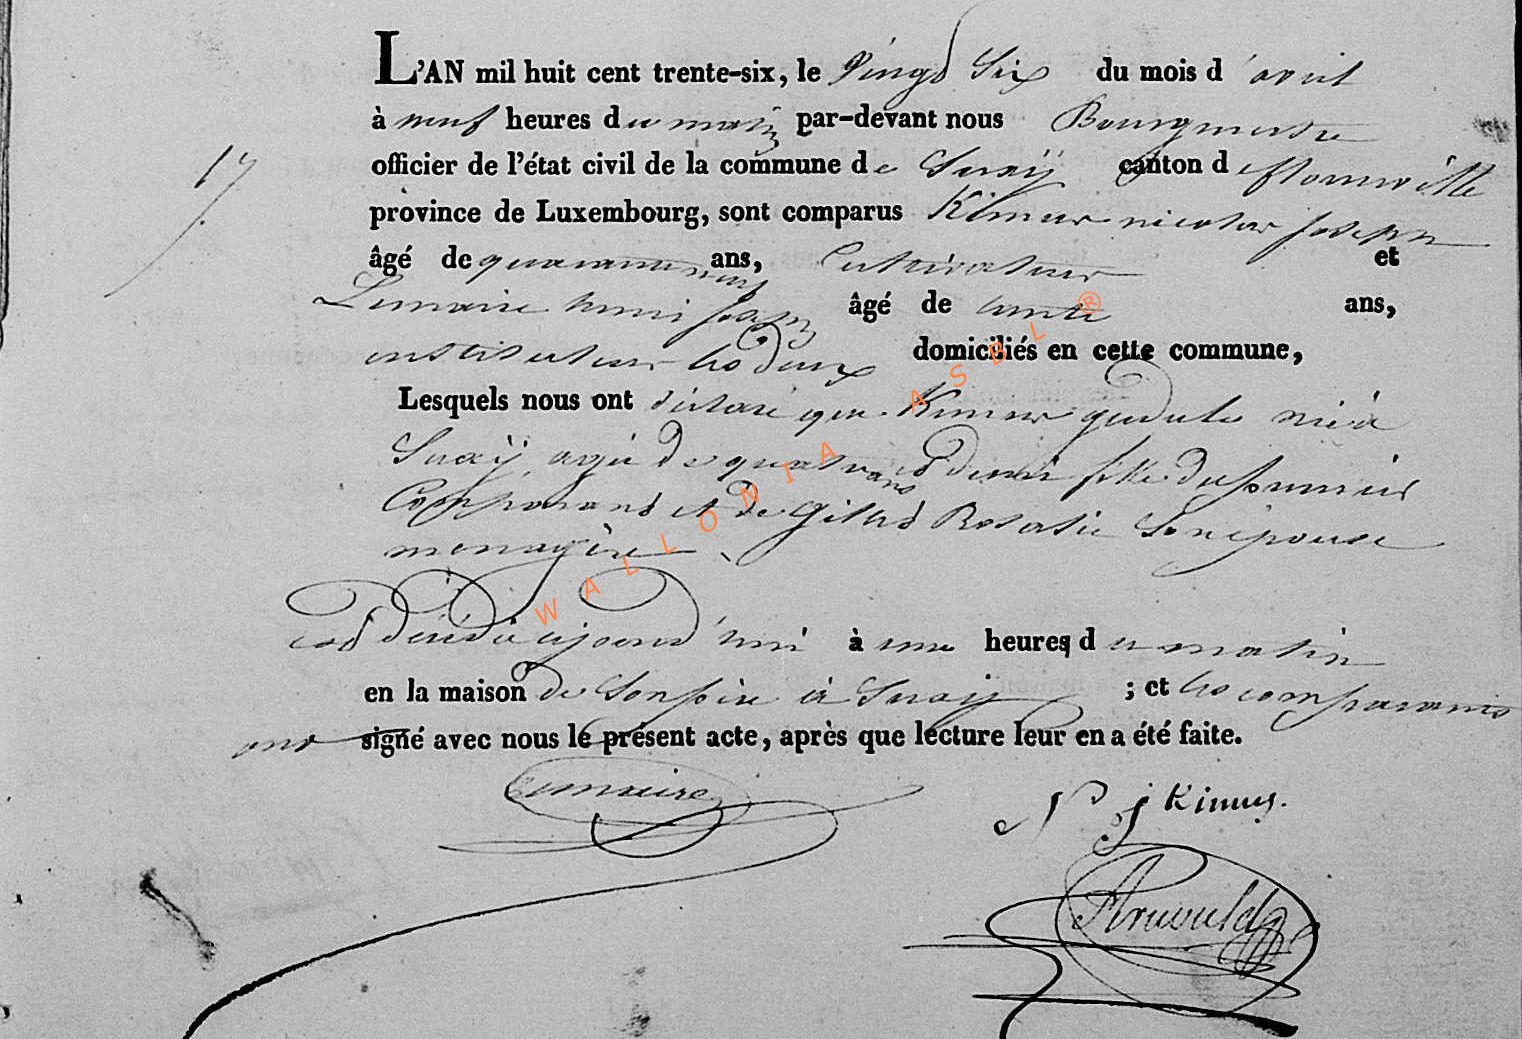 L'AN mil huit cent trente-six, le Vingt Six du mois d'avril
à neuf heures du matin par-devant nous Bourgmestre
officier de l'état civil de la commune de Suxÿ canton d
17
province de Luxembourg, sont comparus Kimus nicolas joseph
âgé de quarante neuf ans, Cultivateur et
Lemaire henri joseph âgé de trente ans,
instituteur les deux domiciliés en cette commune,
Lesquels nous ont déclaré que Kimus gudule née à
Suxÿ, agée de quatre ans et demi fille du premier
Comparant et de Rosalie Son épouse
menagère
est décédée aujourd'hui à une heures du matin
en la maison de Son père à Suxÿ ; et les comparants
ont signé avec nous le présent acte, après que lecture leur en a été faite.
Lemaire
N j Kimus.
WALLONIA ASBL ®